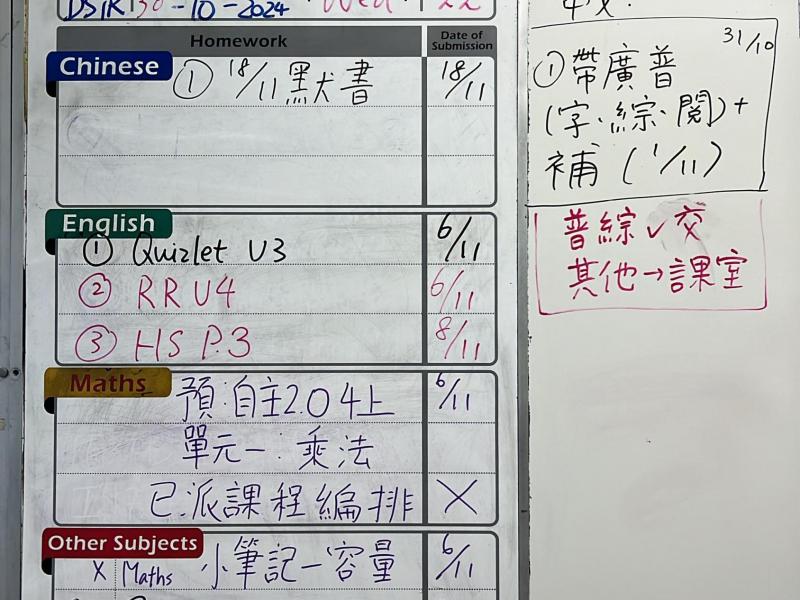 30-10-2024 Wed 22
Homework
Date of Submission
Chinese
① 18/11 默書 18/11
English
① Quizlet U3 6/11
② RR U4 6/11
③ HS P.3 8/11
Maths
預:自主2.0 4上 6/11
單元一:乘法
已派課程編排 X
Other Subjects
X Maths 小筆記-容量 6/11
中文:
31/10
①帶廣普
(字·綜·閱)+
補(1/11)
普綜✓交
其他→課室